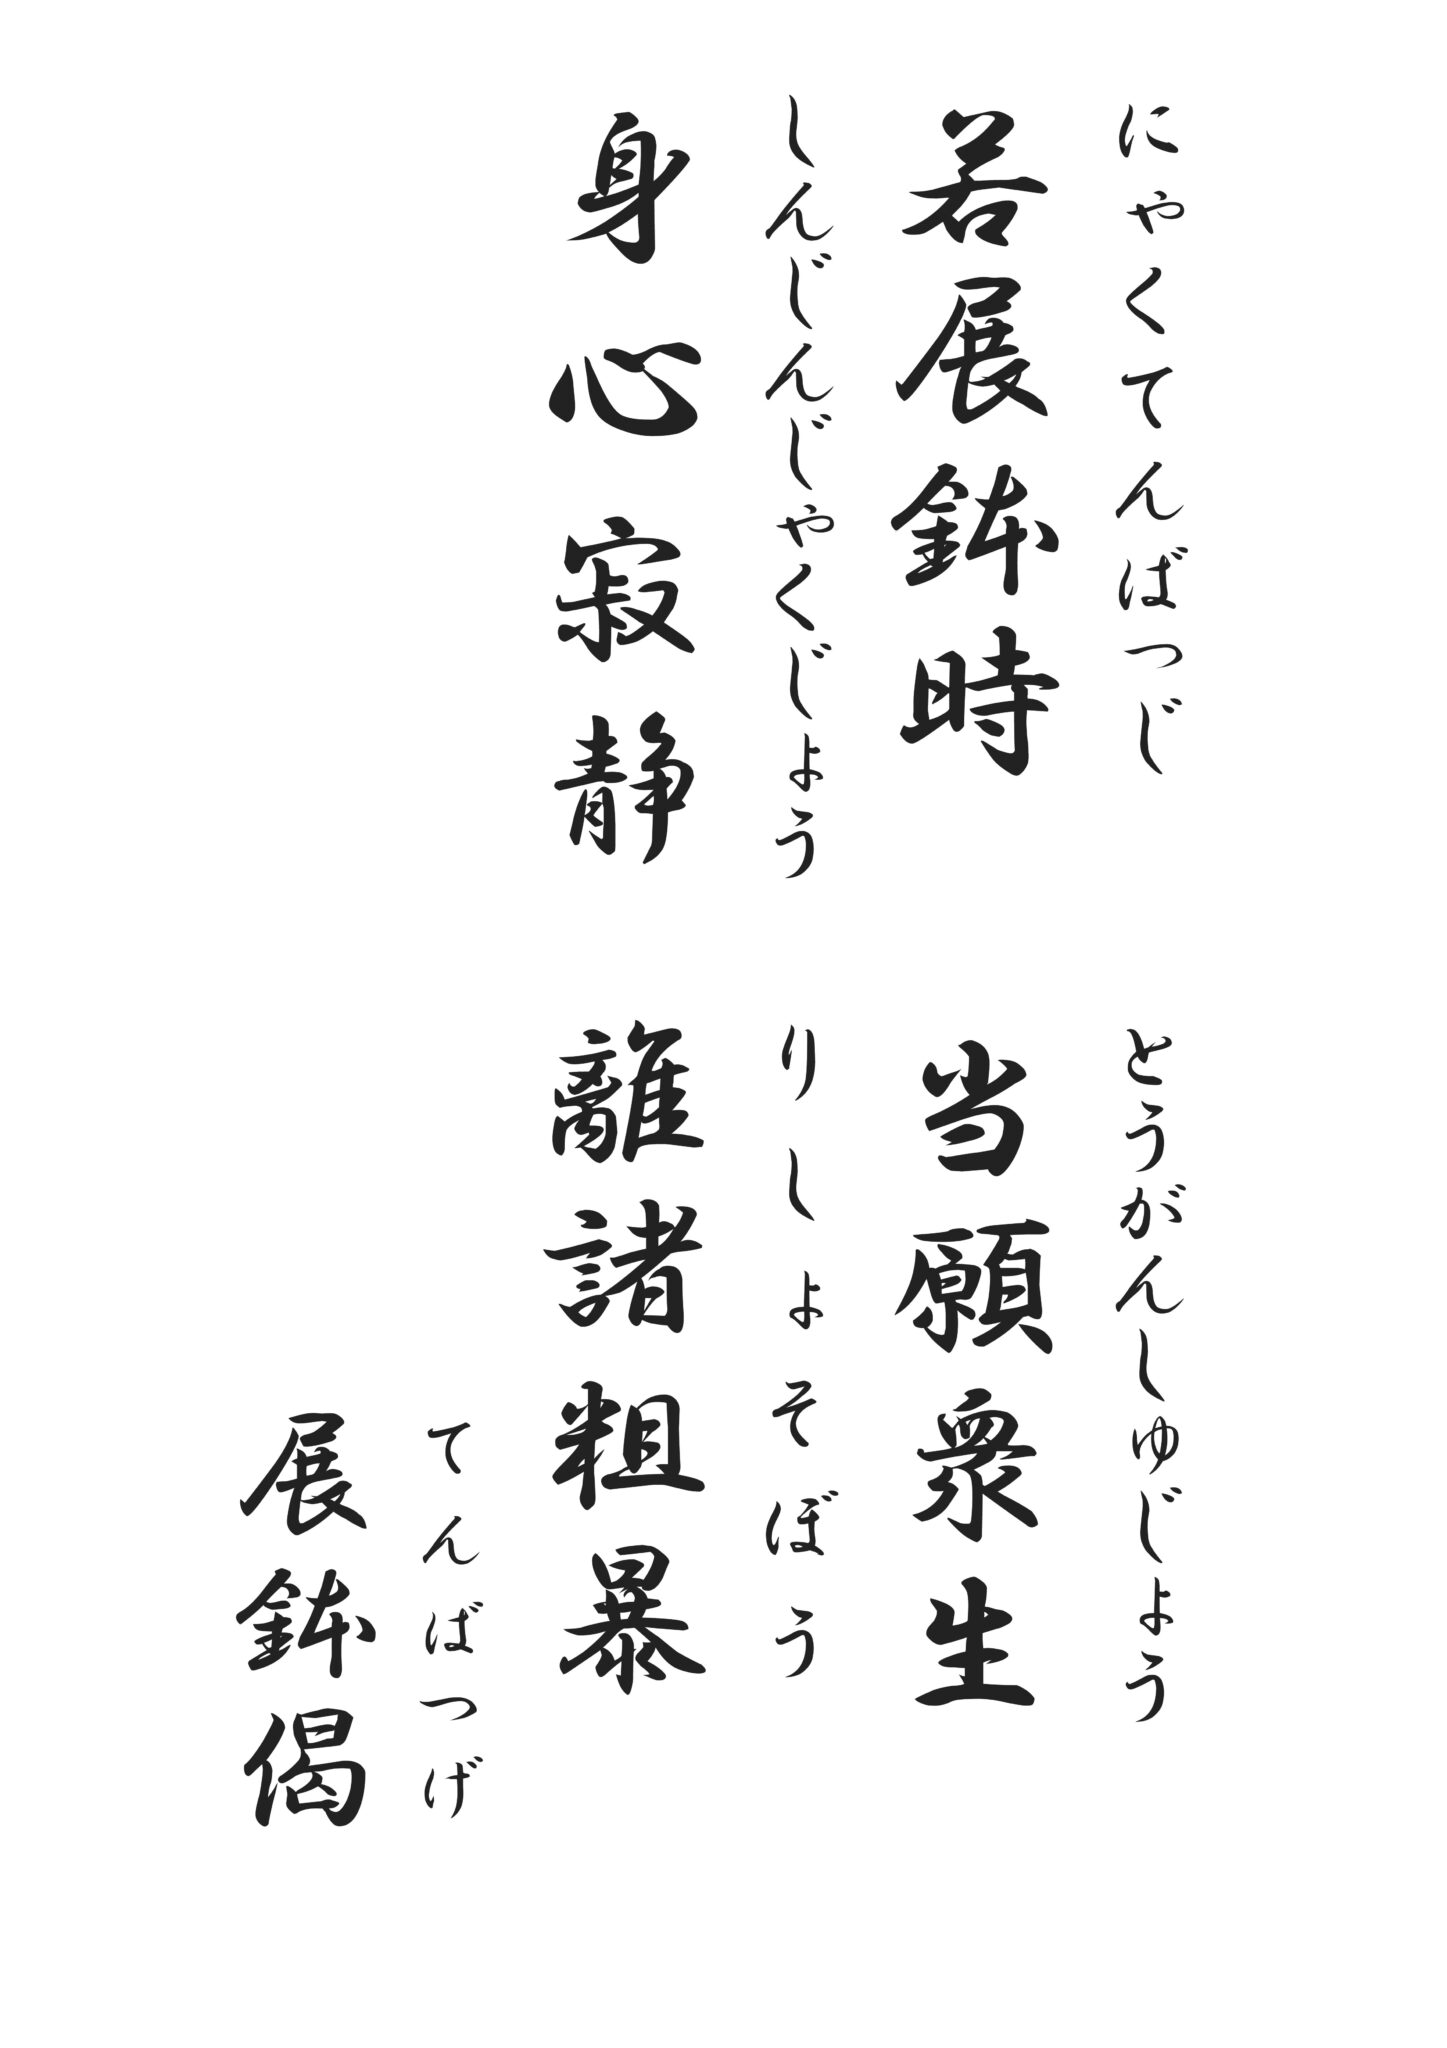 にゃくてんばつじ　とうがんしゅじょう
若展鉢時　当願衆生
しんじんじゃくじょう　りしょそぼう
身心寂静　離諸粗暴
てんばつげ
展鉢偈